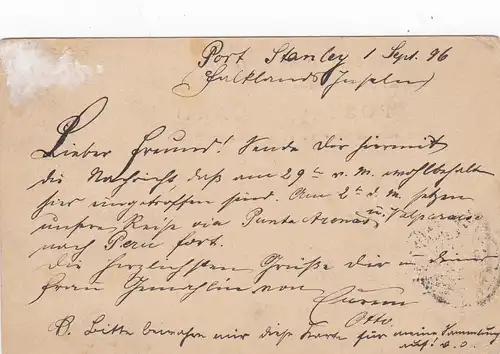 Port Stanley 1 Sept. 96
(Falklands Inseln)
Lieber Freund! Sende Dir hiermit
die Nachricht, daß am 29t v. M. wohlbehalt
hier eingetroffen sind. Am 2t d. M. setzen
unsere Reise via Punta Arenas u. Valparaiso
nach Peru fort.
die herzlichsten Grüße dir u. deiner
Frau Gemahlin von
Eurem
Otto
B. Bitte bewahre mir diese Karte für meine Sammlung
auf!